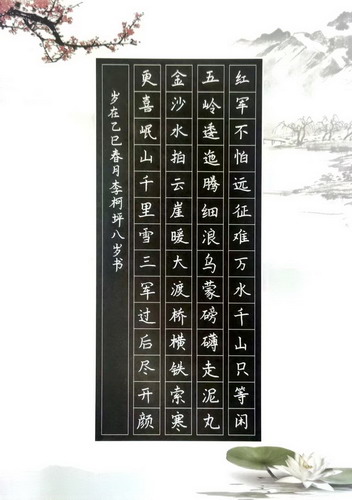 红军不怕远征难万水千山只等闲
五岭逶迤腾细浪乌蒙磅礴走泥丸
金沙水拍云崖暖大渡桥横铁索寒
更喜岷山千里雪三军过后尽开颜
岁在乙巳春月李柯坪八岁书